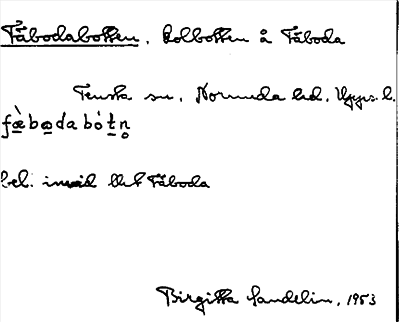 Fäbodabotten, kolbotten å Fäboda
Tensta sn, Norunda hd, Upps. l.
fæ̀bodabótn̥
bel. invid Ut Fäboda
Birgitta Sandelin, 1953